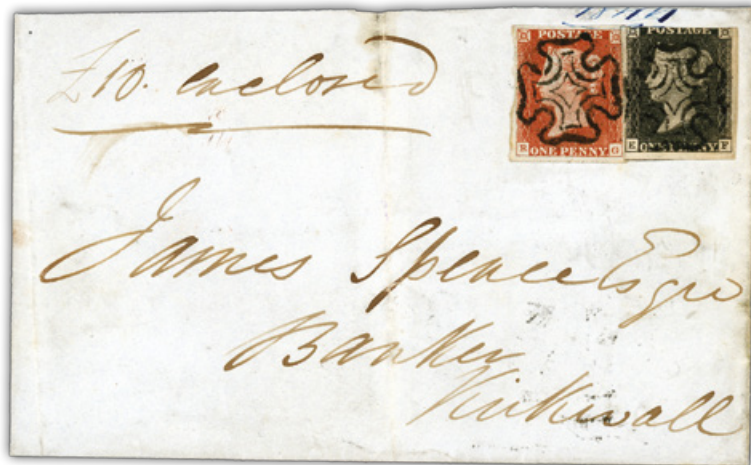 £10. enclosed
POSTAGE POSTAGE
R ONE PENNY G E ONE PENNY F
James Spence Esqre
Banker
Kirkwall